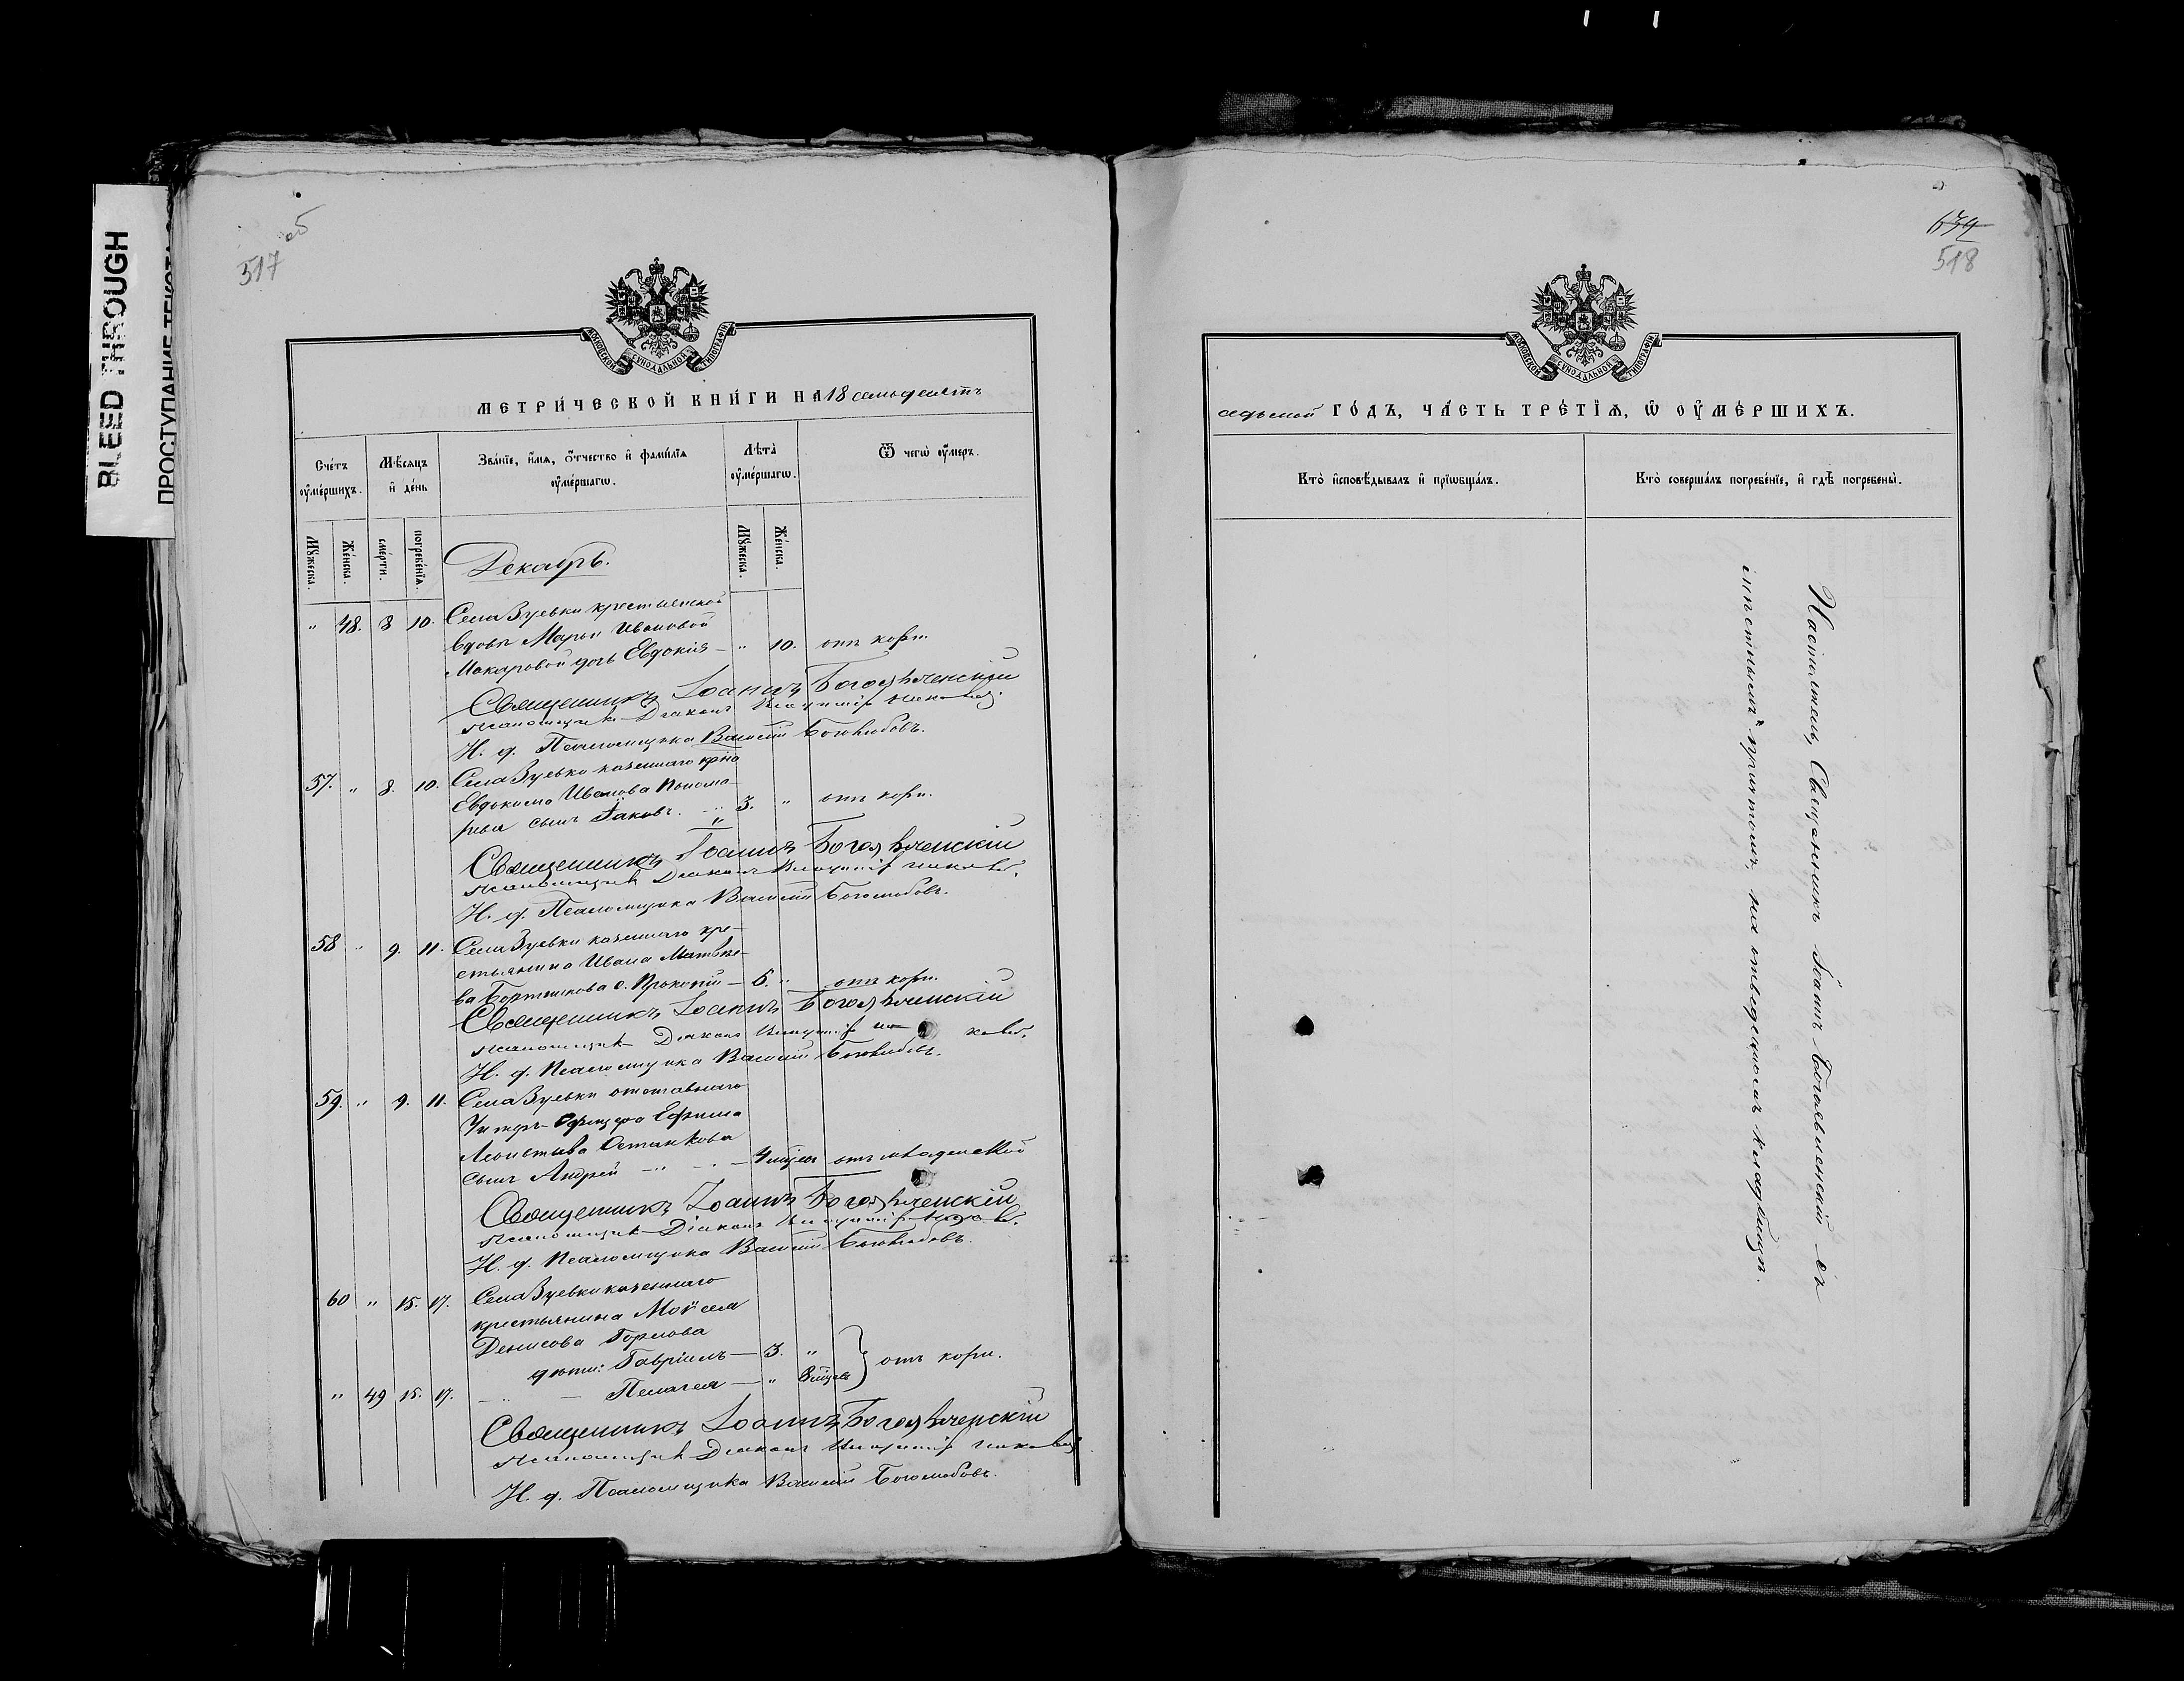 BLEED THROUGH
ПРОСТУПАНИЕ ТЕКСТА
517 об
МОСКОВСКОЙ СУНОДАЛЬНОЙ ТИПОГРАФІИ
МЕТРИ́ЧЕСКОЙ КНИ́ГИ НА 18 семьдесятъ
Сче́тъ оу҆ме́ршихъ.
Мѣ́сяцъ и҆ де́нь
Зва́нїе, и҆́мѧ, ѻ҆́тчество и҆ фами́лїѧ оу҆ме́ршагѡ.
Лѣта̀ оу҆ме́ршагѡ.
Ѿ чегѡ̀ оу҆́меръ.
Мꙋ́жеска.
Же́нска.
сме́рти.
погребе́нїѧ.
Мꙋ́жеска.
Же́нска.
Декабрь.
" 48. 8 10. Села Зуевки крестьянской
вдовы Марьи Ивановой
Макаровой дочь Евдокія — " 10. отъ кори.
Священникъ Іоаннъ Богоявленскій
Псаломщикъ Діаконъ
И. д. Псаломщика Василій Боголюбовъ.
57. " 8. 10. Села Зуевки казеннаго кр-на
Евдокима Иванова Понома-
рева сынъ Іаковъ. 3. " отъ кори.
Священникъ Іоаннъ Богоявленскій
Псаломщикъ Діаконъ
И. д. Псаломщика Василій Боголюбовъ.
58 " 9. 11. Села Зуевки казеннаго кре-
стьянина Ивана Матвѣе-
ва с. Прокопій — 5. " отъ кори.
Священникъ Іоаннъ Богоявленскій
Псаломщикъ Діаконъ
И. д. Псаломщика Василій Боголюбовъ.
59. " 9. 11. Села Зуевки отставнаго
Унтеръ-Офицера Ефима
Леонтьева Останкова
сынъ Андрей — 4 мѣсяц отъ младенской
Священникъ Іоаннъ Богоявленскій
Псаломщикъ Діаконъ
И. д. Псаломщика Василій Боголюбовъ.
60 " 15. 17. Села Зуевки казеннаго
крестьянина Моѵсея
Денисова Горлова
дѣти: Гавріилъ — 3. " отъ кори.
" 49 15. 17. Пелагея — "
Священникъ Іоаннъ Богоявленскій
Псаломщикъ Діаконъ
И. д. Псаломщика Василій Боголюбовъ.
518
МОСКОВСКОЙ СУНОДАЛЬНОЙ ТИПОГРАФІИ
седьмой ГО́ДЪ, ЧА́СТЬ ТРЕ́ТЇѦ, Ѡ҆ ОУ҆МЕ́РШИХЪ.
Кто̀ и҆сповѣ́дывалъ и҆ прїѡбща́лъ.
Кто̀ соверша́лъ погребе́нїе, и҆ гдѣ̀ погребены̀.
Настоятель, Священникъ Іоаннъ Богоявленскій съ
мѣстнымъ причтомъ, на отведенномъ кладбищѣ.